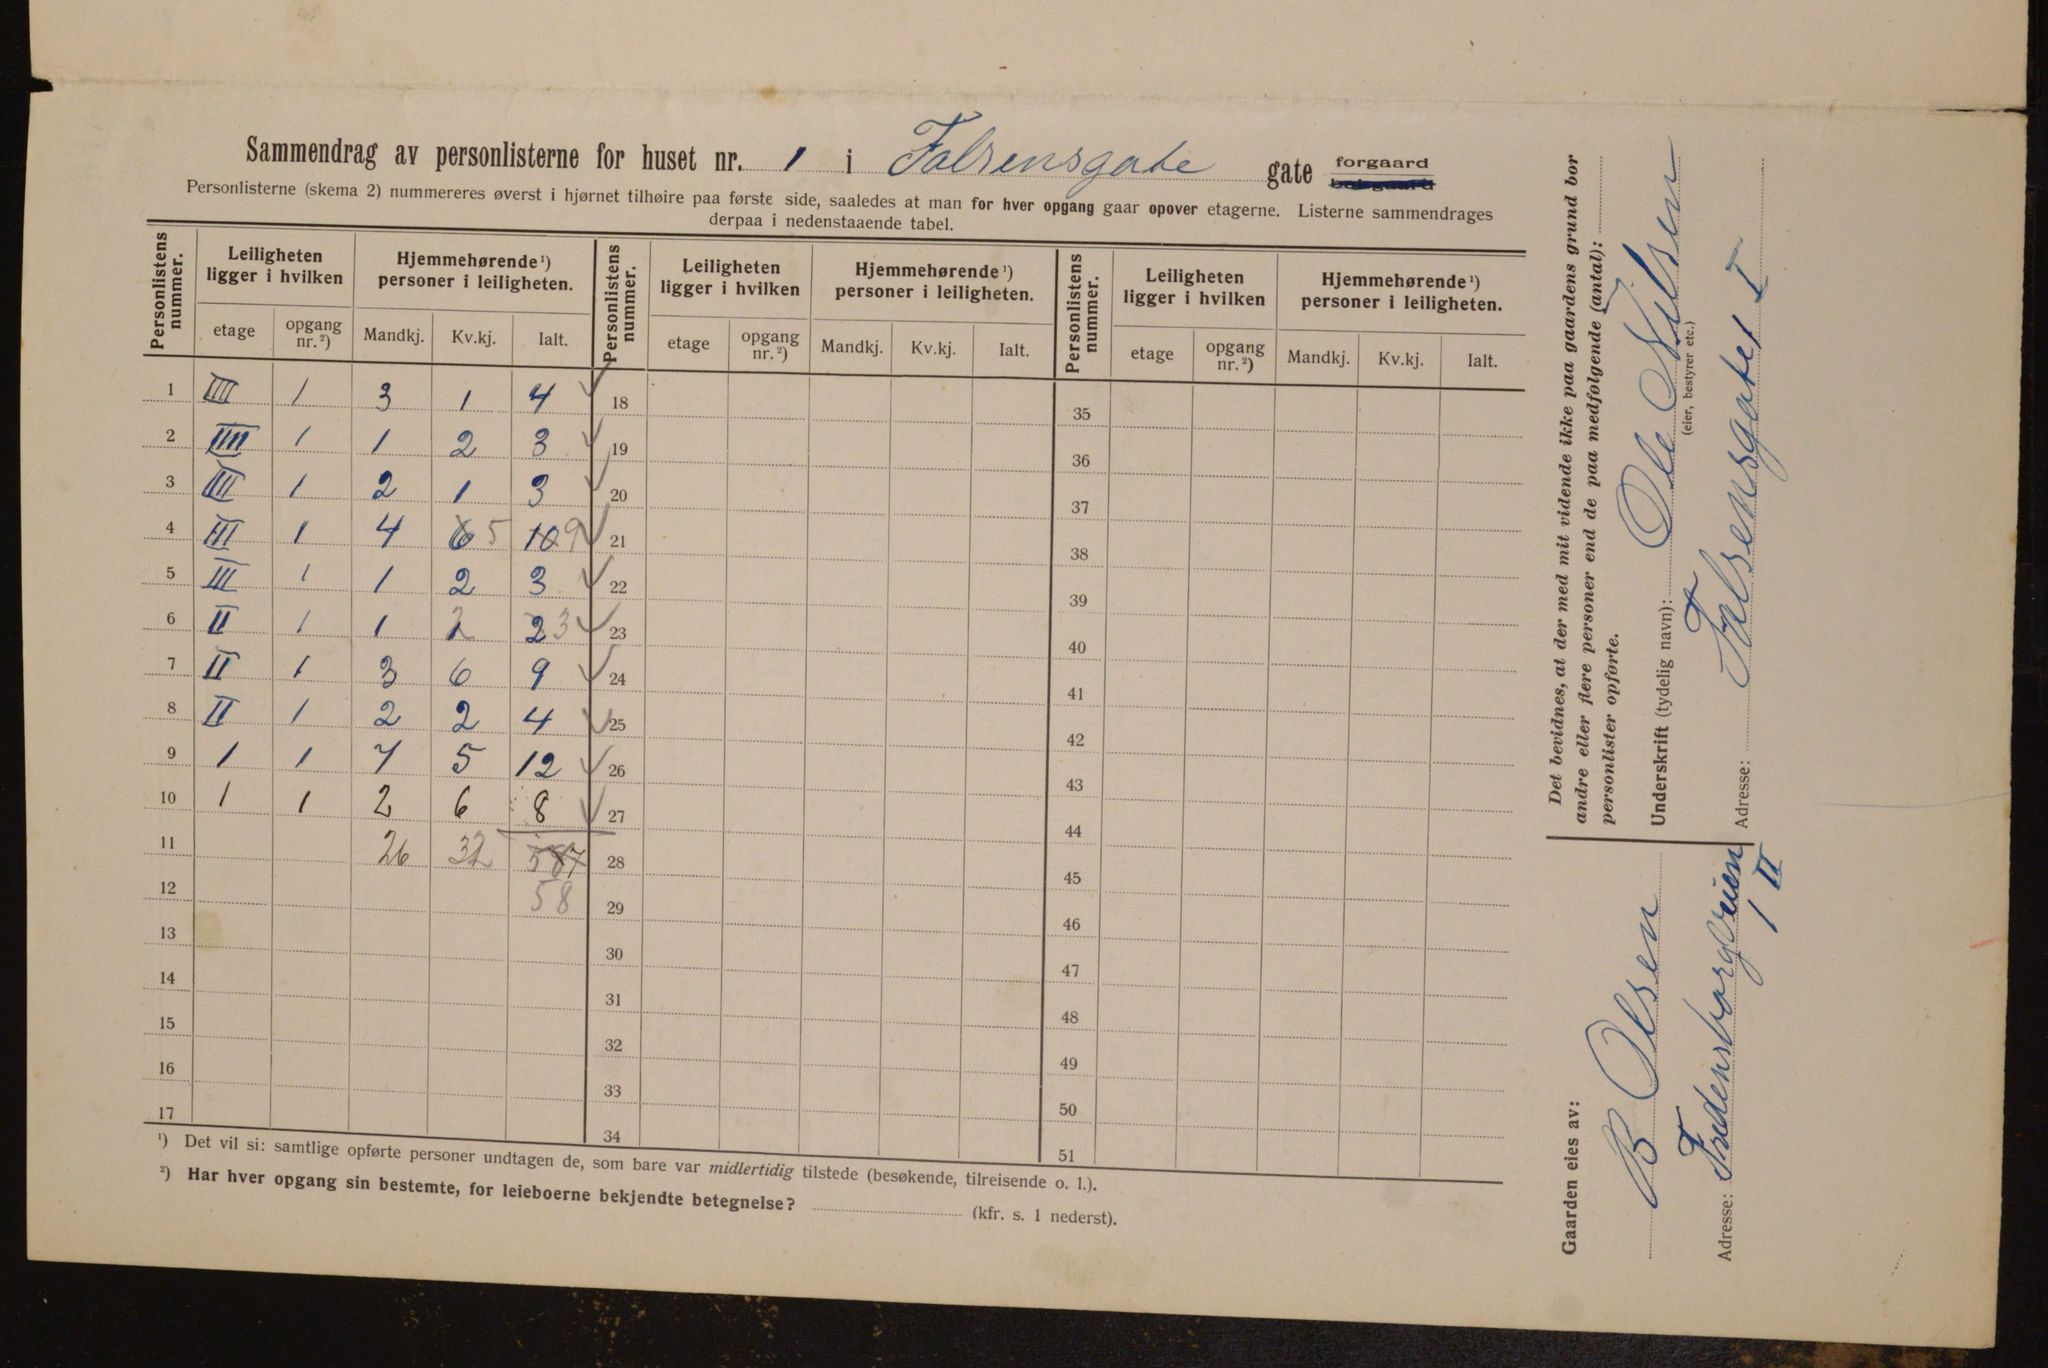 Sammendrag av personlisterne for huset nr. 1 i Falsensgate gate forgaard bakgaard
Personlisterne (skema 2) nummereres øverst i hjørnet tilhøire paa første side, saaledes at man for hver opgang gaar opover etagerne. Listerne sammendrages
derpaa i nedenstaaende tabel.
Personlistens nummer. Leiligheten ligger i hvilken Hjemmehørende ¹) personer i leiligheten. Personlistens nummer. Leiligheten ligger i hvilken Hjemmehørende ¹) personer i leiligheten. Personlistens nummer. Leiligheten ligger i hvilken Hjemmehørende ¹) personer i leiligheten.
etage opgang nr. ²) Mandkj. Kv.kj. Ialt. etage opgang nr. ²) Mandkj. Kv.kj. Ialt. etage opgang nr. ²) Mandkj. Kv.kj. Ialt.
1 IIII 1 3 1 4 ✓ 18 35
2 IIII 1 1 2 3 ✓ 19 36
3 III 1 2 1 3 ✓ 20 37
4 III 1 4 6 5 10 9 ✓ 21 38
5 III 1 1 2 3 ✓ 22 39
6 II 1 1 2 2 3 ✓ 23 40
7 II 1 3 6 9 ✓ 24 41
8 II 1 2 2 4 ✓ 25 42
9 1 1 7 5 12 ✓ 26 43
10 1 1 2 6 8 ✓ 27 44
11 26 32 587 28 45
12 58 29 46
13 30 47
14 31 48
15 32 49
16 33 50
17 34 51
¹) Det vil si: samtlige opførte personer undtagen de, som bare var midlertidig tilstede (besøkende, tilreisende o. l.).
²) Har hver opgang sin bestemte, for leieboerne bekjendte betegnelse? (kfr. s. 1 nederst).
Det bevidnes, at der med mit vidende ikke paa gaardens grund bor
andre eller flere personer end de paa medfølgende (antal):
personlister opførte.
Underskrift (tydelig navn): Ole Nilsen
(eier, bestyrer etc.)
Adresse: Falsensgate 1 I
Gaarden eies av:
B Olsen
Adresse: Fredensborgveien
1 II